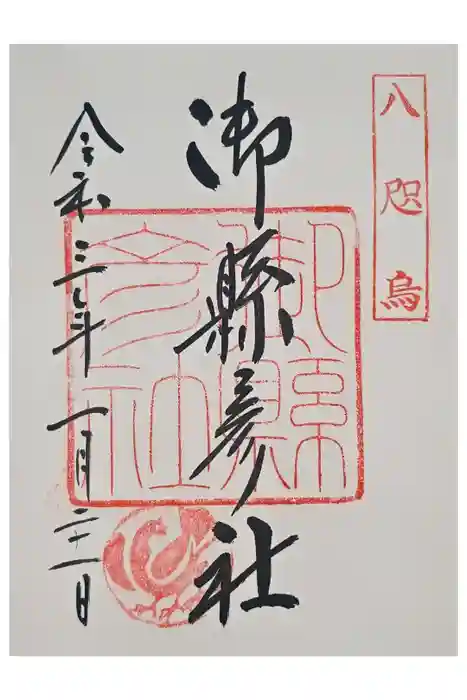 八咫烏
御縣彦社
御縣
彦社
令和三年一月二十一日